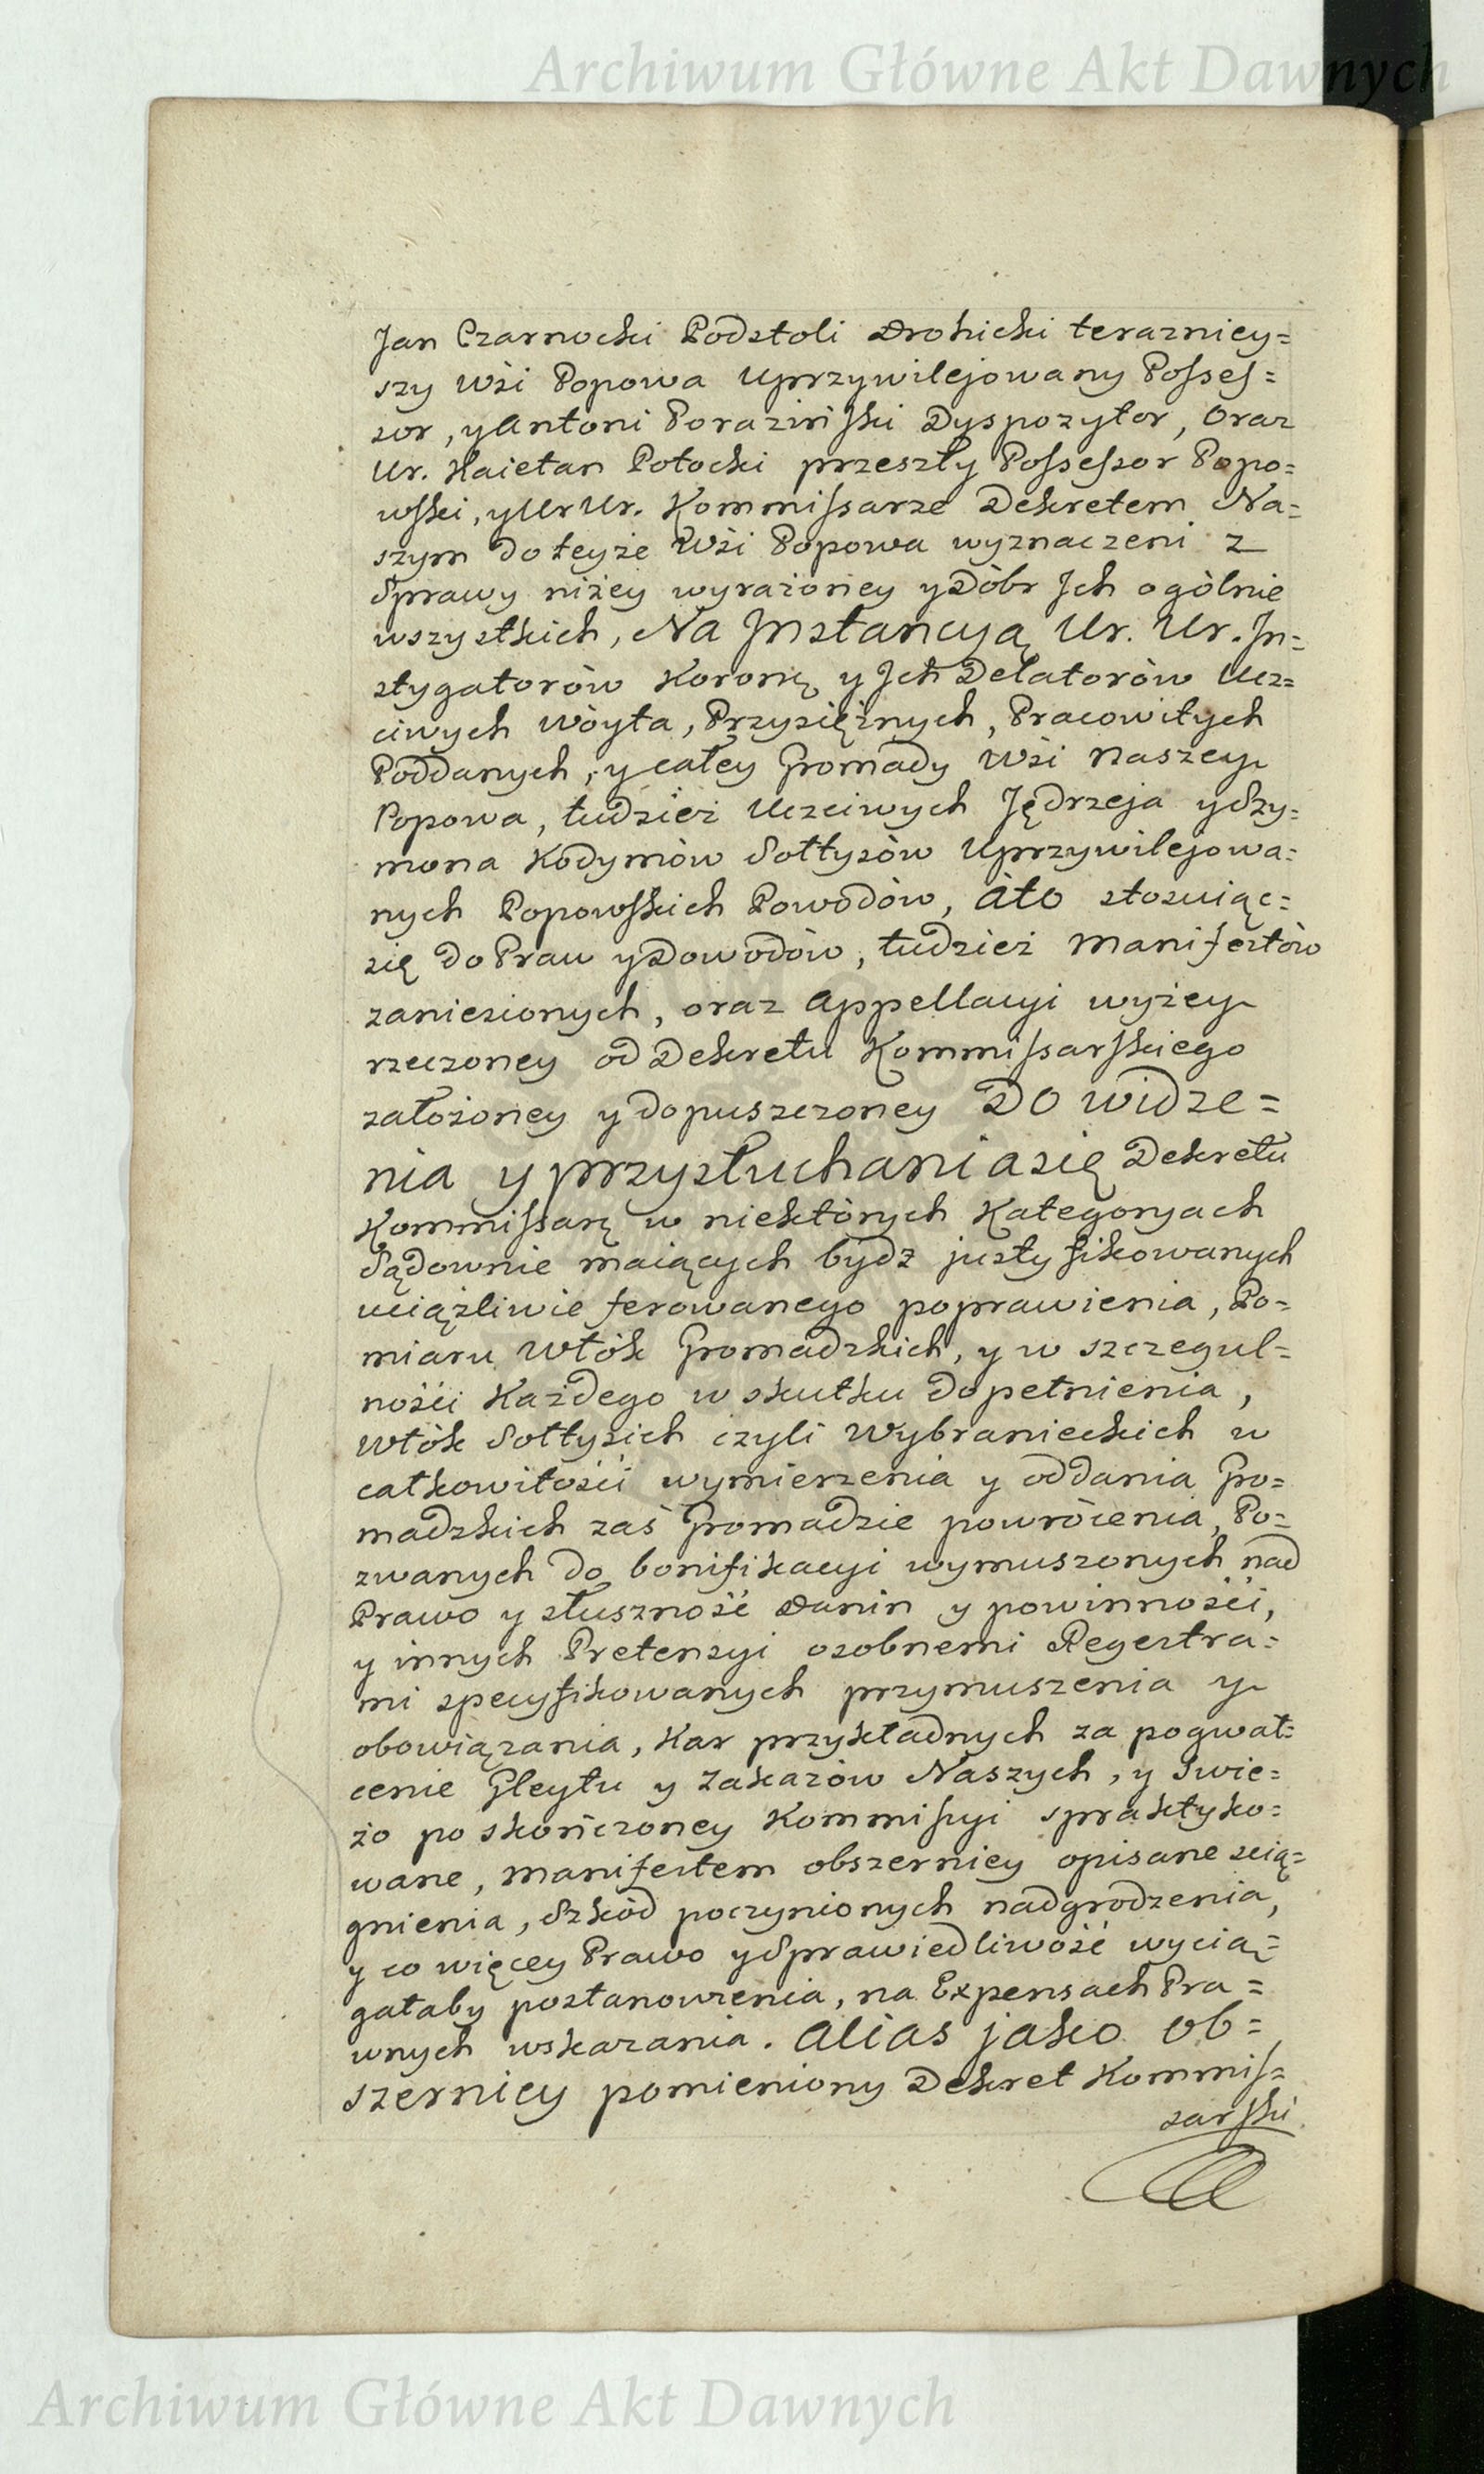 Archiwum Główne Akt Dawnych
Jan Czarnocki Podstoli Drohicki terazniey=
szy Wśi Popowa Uprzywilejowany Posses=
sor, y Antoni Poraziński Dyspozytor, oraz
Ur. Kaietan Potocki przeszły Possessor Popo=
wski, y Ur Ur. Kommissarze Dekretem Na=
szym do teyże Wśi Popowa wyznaczeni z
Sprawy niżey wyrażoney y Dóbr Ich ogólnie
wszystkich, Na Instancyą Ur. Ur. In=
stygatorów Koronę y Ich Delatorów Ucz=
ciwych Wóyta, Przysiężnych, Pracowitych
Poddanych, y całey Gromady Wśi Naszey
Popowa, tudzież Uczciwych Jędrzeja y Szy=
mona Kodymów Sołtysów Uprzywilejowa=
nych Popowskich Powodów, Ato stosuiąc=
się do Praw y Dowodów, tudzież Manifestów
zaniesionych, oraz Appellacyi wyżey
rzeczoney od Dekretu Kommissarskiego
założoney y dopuszczoney Do widze=
nia y przysłuchania się Dekretu
Kommissarę w niektórych Kategoryach
Sądownie maiących bydz justyfikowanych
uciążliwie ferowanego poprawienia, Po=
miaru Włók Gromadzkich, y w szczegul=
nośći Każdego w skutku dopełnienia,
Włók Sołtysich czyli Wybranieckich w
całkowitośći wymierzenia y oddania Gro=
madzkich zaś Gromadzie powrócenia, Po=
zwanych do bonifikacyi wymuszonych nad
Prawo y słuszność Danin y powinnośći,
y innych Pretensyi osobnemi Regestra=
mi specyfikowanych przymuszenia y
obowiązania, Kar przykładnych za pogwał=
cenie Gleytu y Zakazów Naszych, y swie=
żo po skończoney Kommissyi spraktyko=
wane, Manifestem obszerniey opisane scią=
gnienia, Szkód poczynionych nadgrodzenia,
y co więcey Prawo y Sprawiedliwość wycią=
gałaby postanowienia, na Expensach Pra=
wnych wskazania. Alias jako ob=
szerniey pomieniony Dekret Kommis=
sarski
Archiwum Główne Akt Dawnych